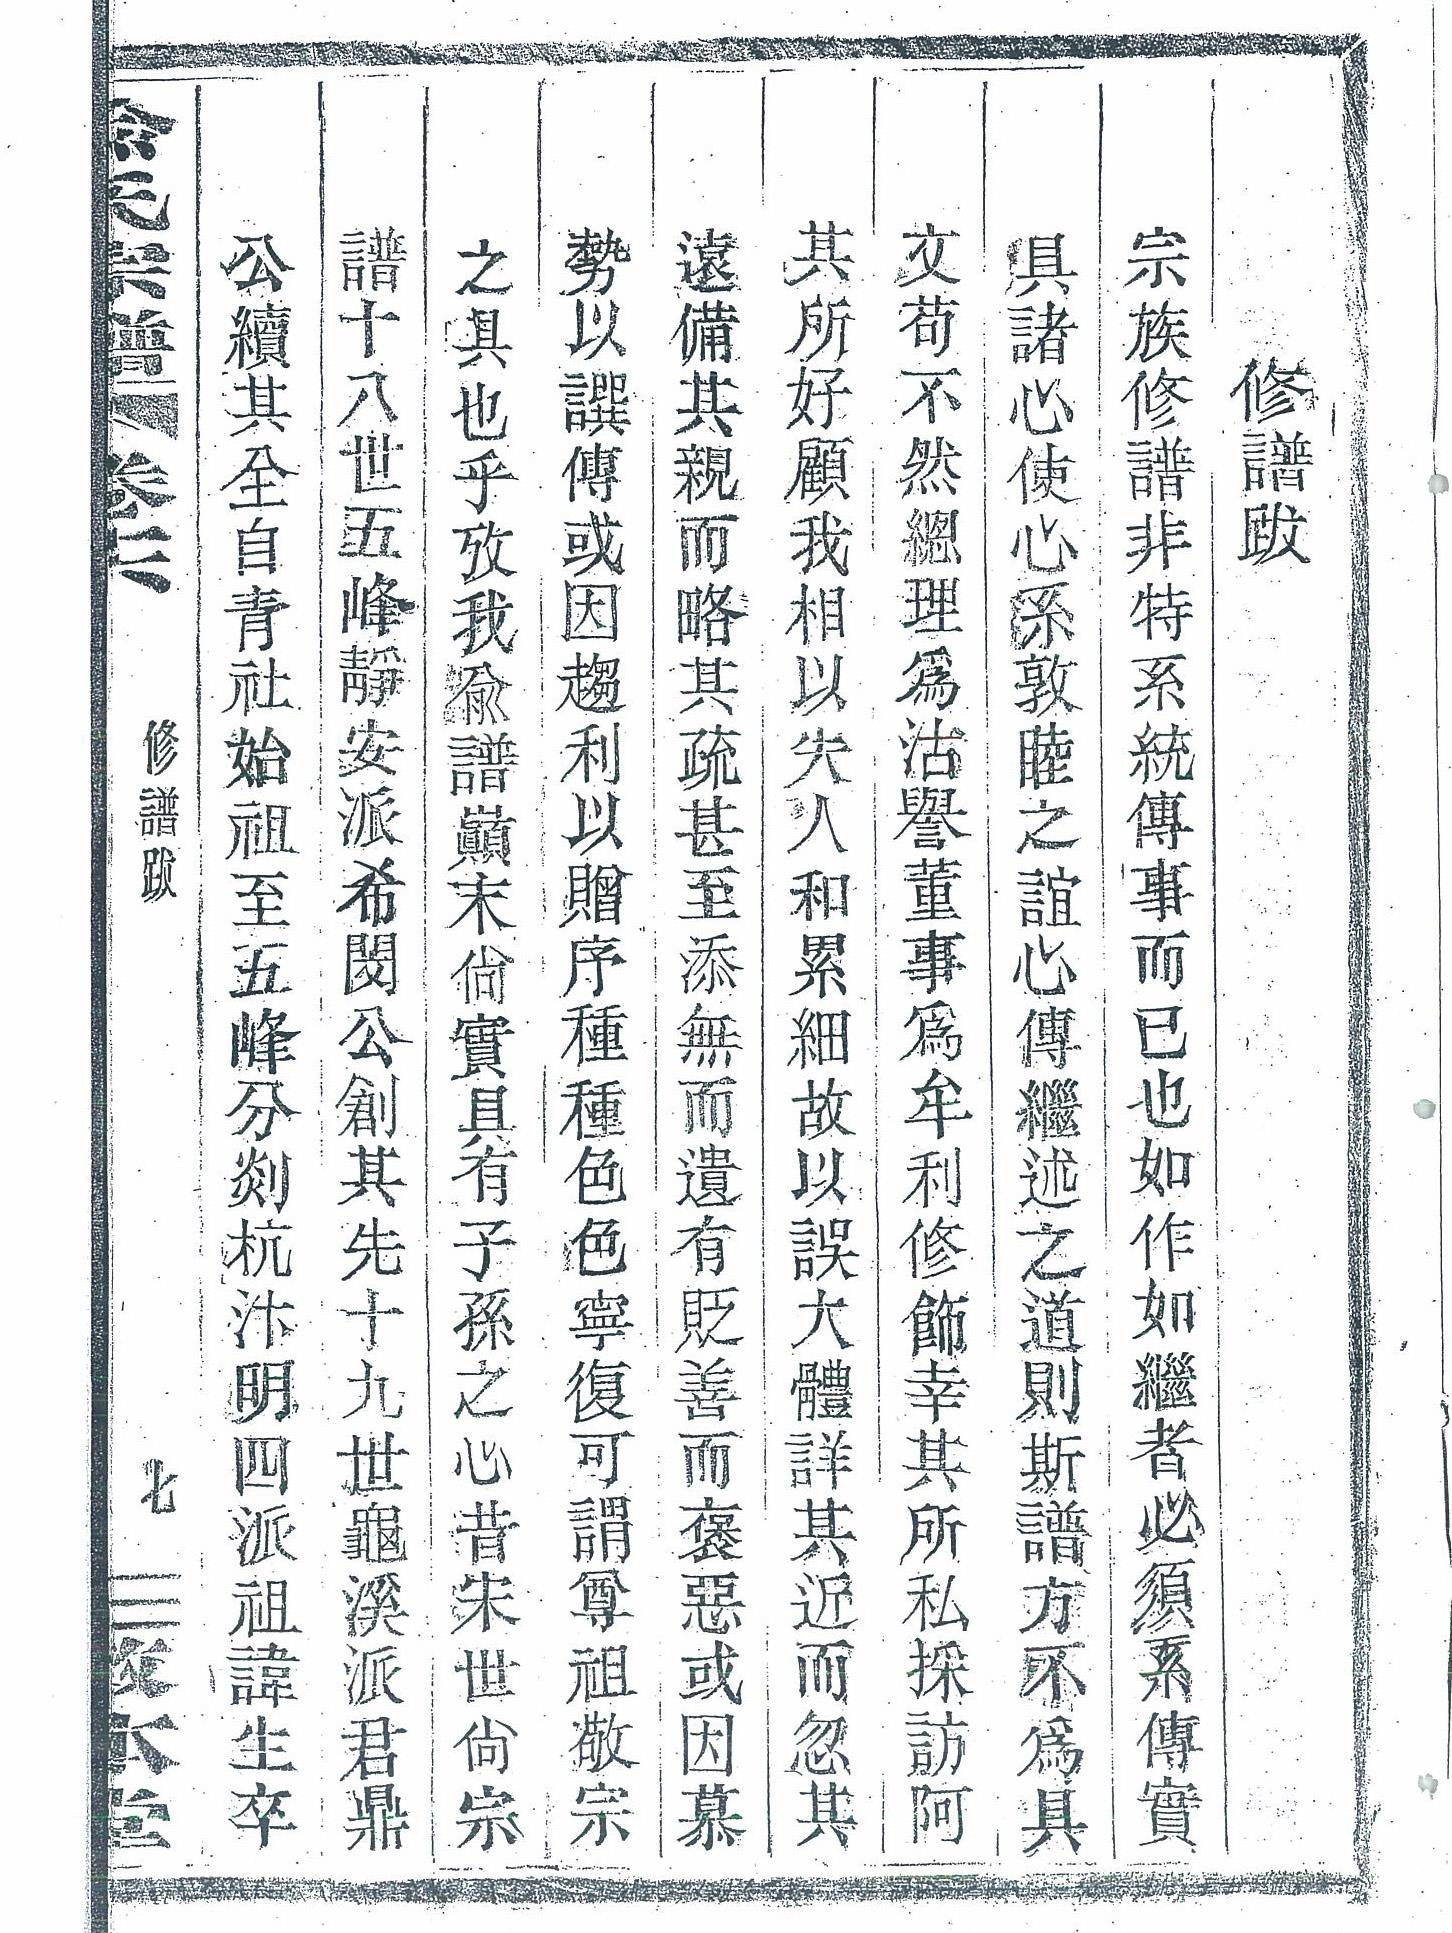 修譜跋
宗族修譜非特系統傳事而已也如作如繼者必須系傳實
具諸心使心系敦睦之誼心傳繼述之道則斯譜方不爲具
文苟不然總理爲沽譽董事爲牟利修飾幸其所私採訪阿
其所好顧我相以失人和累細故以誤大體詳其近而忽其
遠備其親而略其疏甚至添無而遺有貶善而褒惡或因慕
勢以譔傳或因趨利以贈序種種色色寧復可謂尊祖敬宗
之具也乎攷我俞譜巔末尙實具有子孫之心昔宋世尙宗
譜十八世五峰靜安派希閔公創其先十九世龜溪派君鼎
公續其全自青社始祖至五峰分剡杭汴明四派祖諱生卒
俞氏宗譜 卷二 修譜跋 七 敦本堂